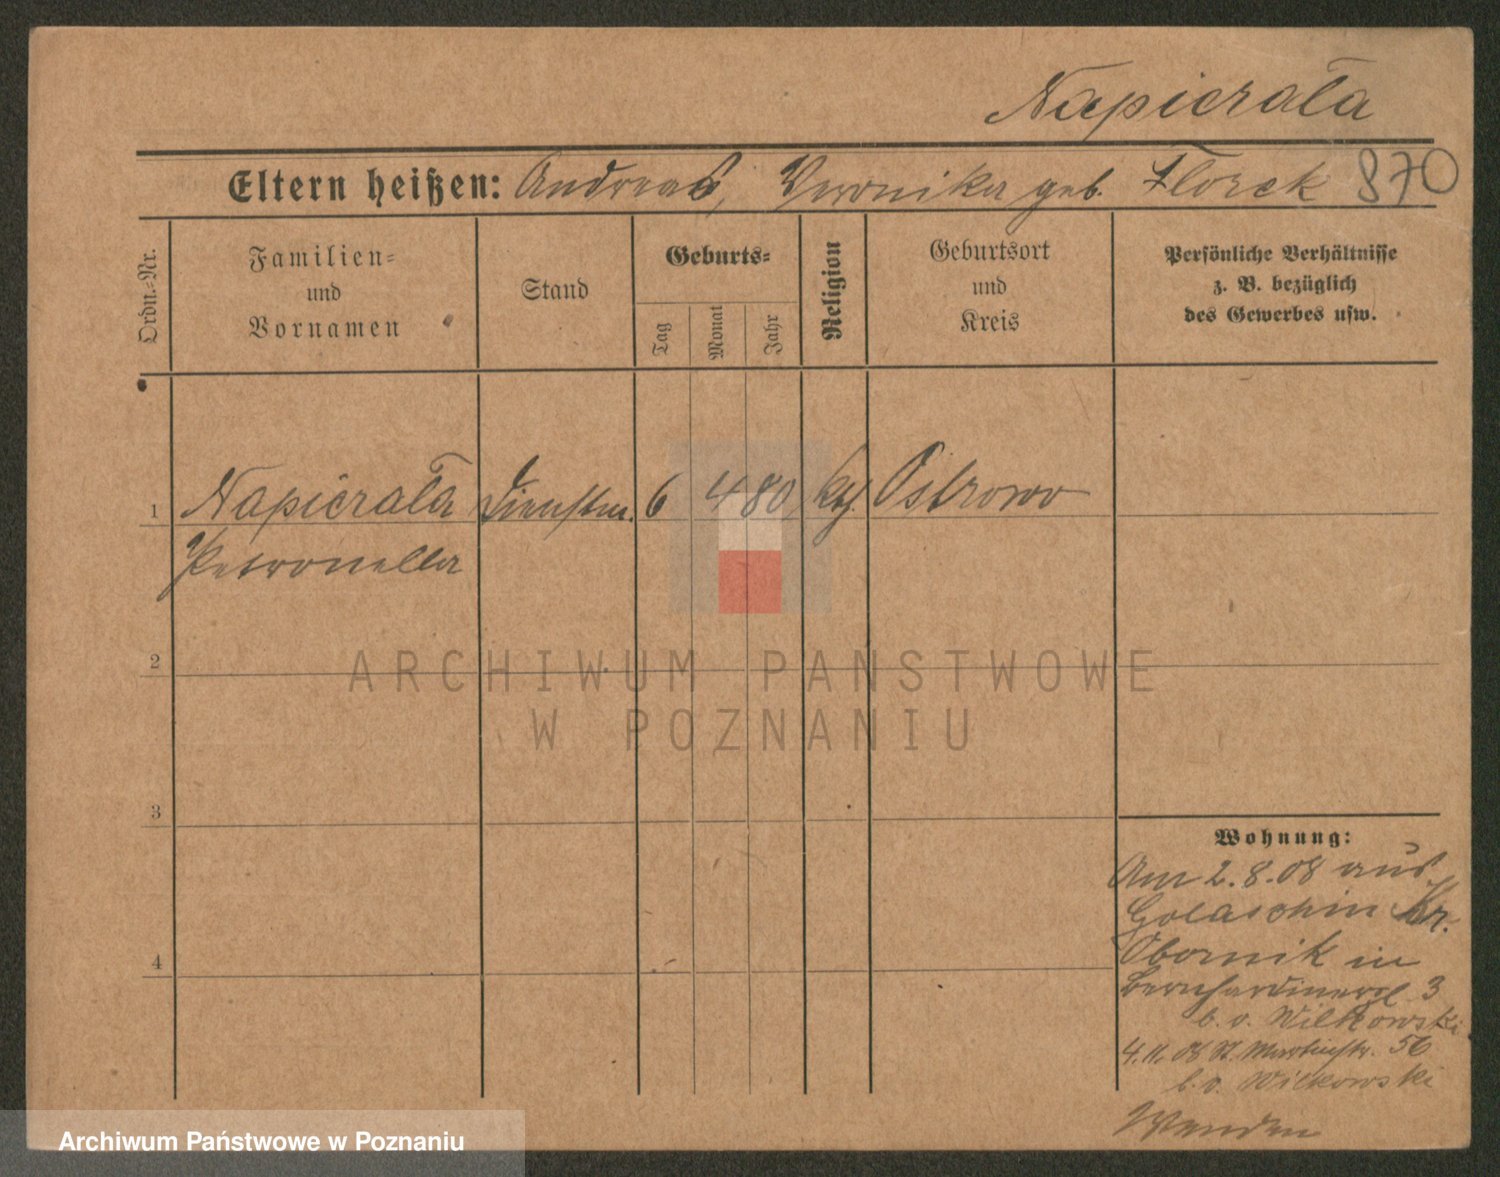 Napierała
Eltern heißen: Andreas, Veronika geb. Florek 870
Ordn.-Nr.
Familien-
und
Vornamen
Stand
Geburts-
Tag
Monat
Jahr
Religion
Geburtsort
und
Kreis
Persönliche Verhältnisse
z. B. bezüglich
des Gewerbes usw.
1 Napierała Dienstm. 6 4 80 kth. Ostrowo
Petronella
2
3
4
Wohnung:
Am 2.8.08 aus
Golaschin Kr.
Obornik in
Bernhardinerpl 3
b. v. Wilkowski
4.11.08 St. Martinstr. 56
b. v. Wilkowski
Wenden
ARCHIWUM PAŃSTWOWE
W POZNANIU
Archiwum Państwowe w Poznaniu